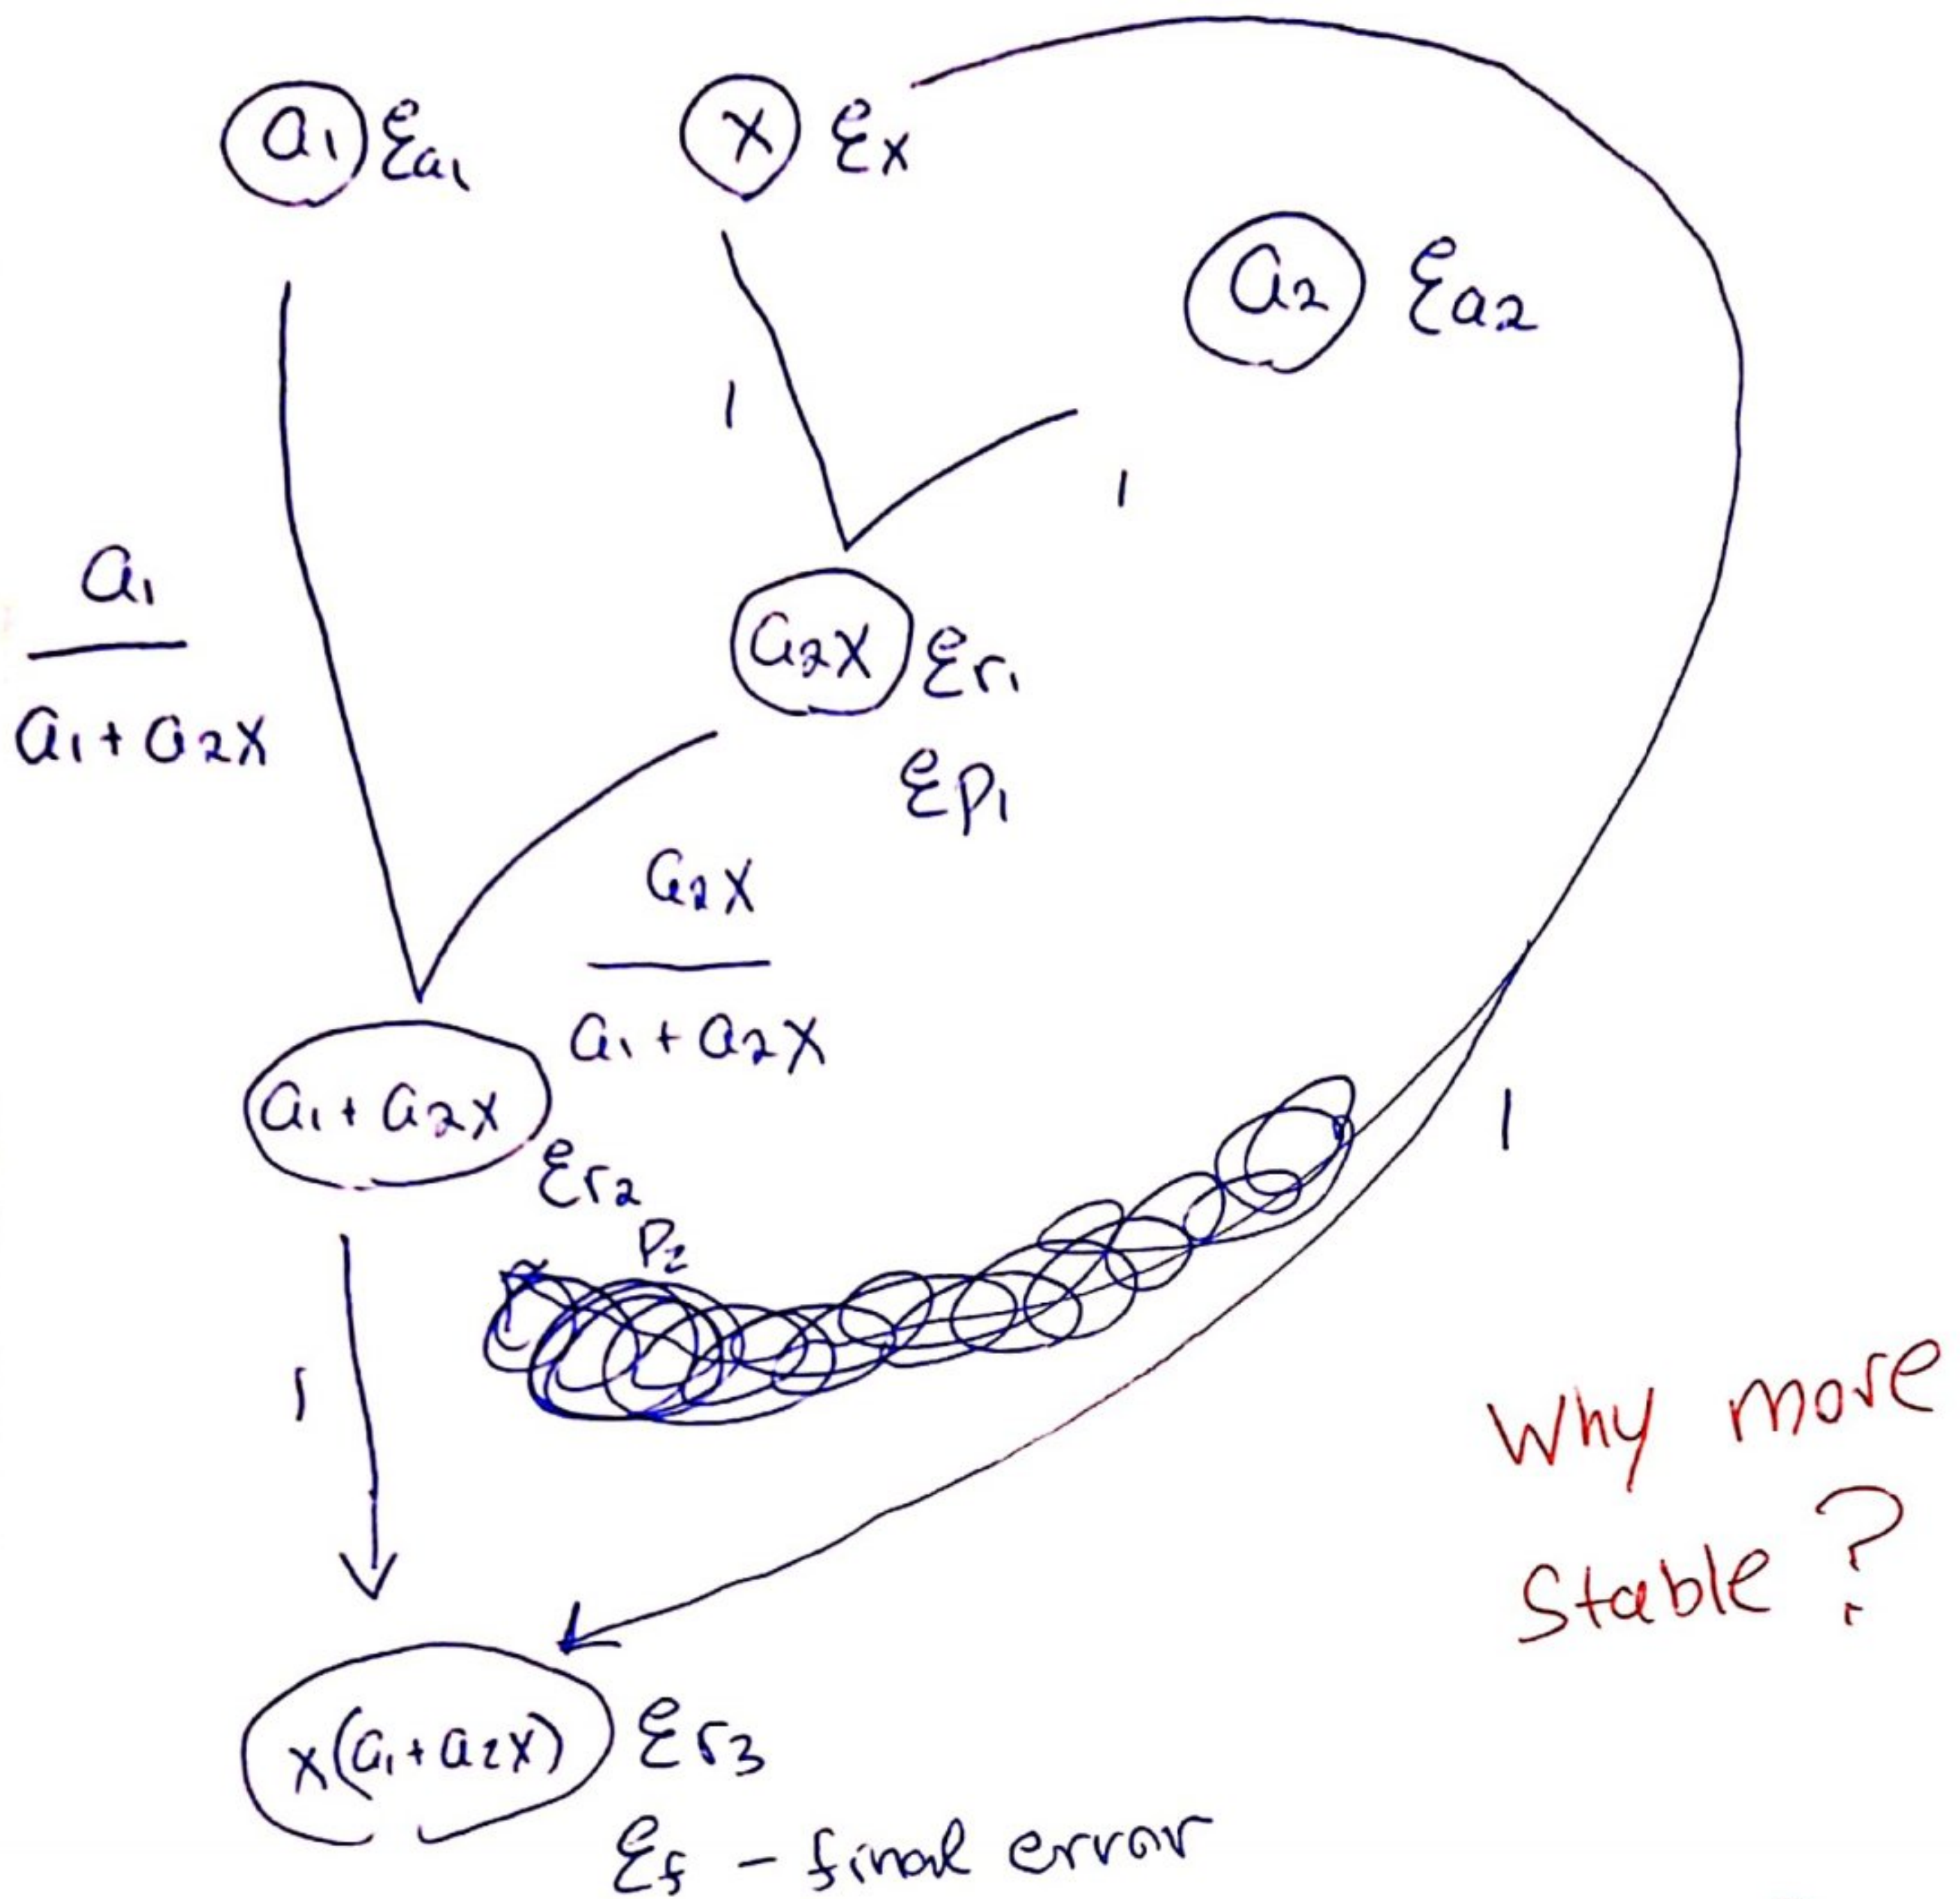 a₁ ξa₁
x ξx
a₂ ξa₂
1
1
a₁
a₁ + a₂x
a₂x ξr₁
ξp₁
a₂x
a₁ + a₂x
a₁ + a₂x
ξr₂
p₂
1
1
Why more
Stable?
x(a₁ + a₂x) ξr₃
ξf - final error